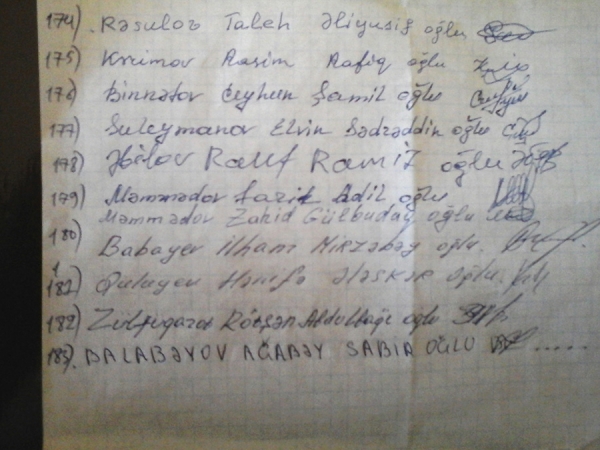 174) Rəsulov Taleh Əliyusif oğlu
175) Kərimov Rasim Rafiq oğlu
176) Binnətov Ceyhun Şamil oğlu
177) Suleymanov Elvin Sədrəddin oğlu
178) Rauf Ramiz oğlu
179) Məmmədov Adil oğlu
Məmmədov Zahid Gülbuday oğlu
180) Babayev İlham Mirzəbəy oğlu
181) Quluyev Hənifə Ələskər oğlu
182) Zülfüqarov Rövşən Abdullağı oğlu
183). BALABƏYOV AĞABƏY SABİR OĞLU